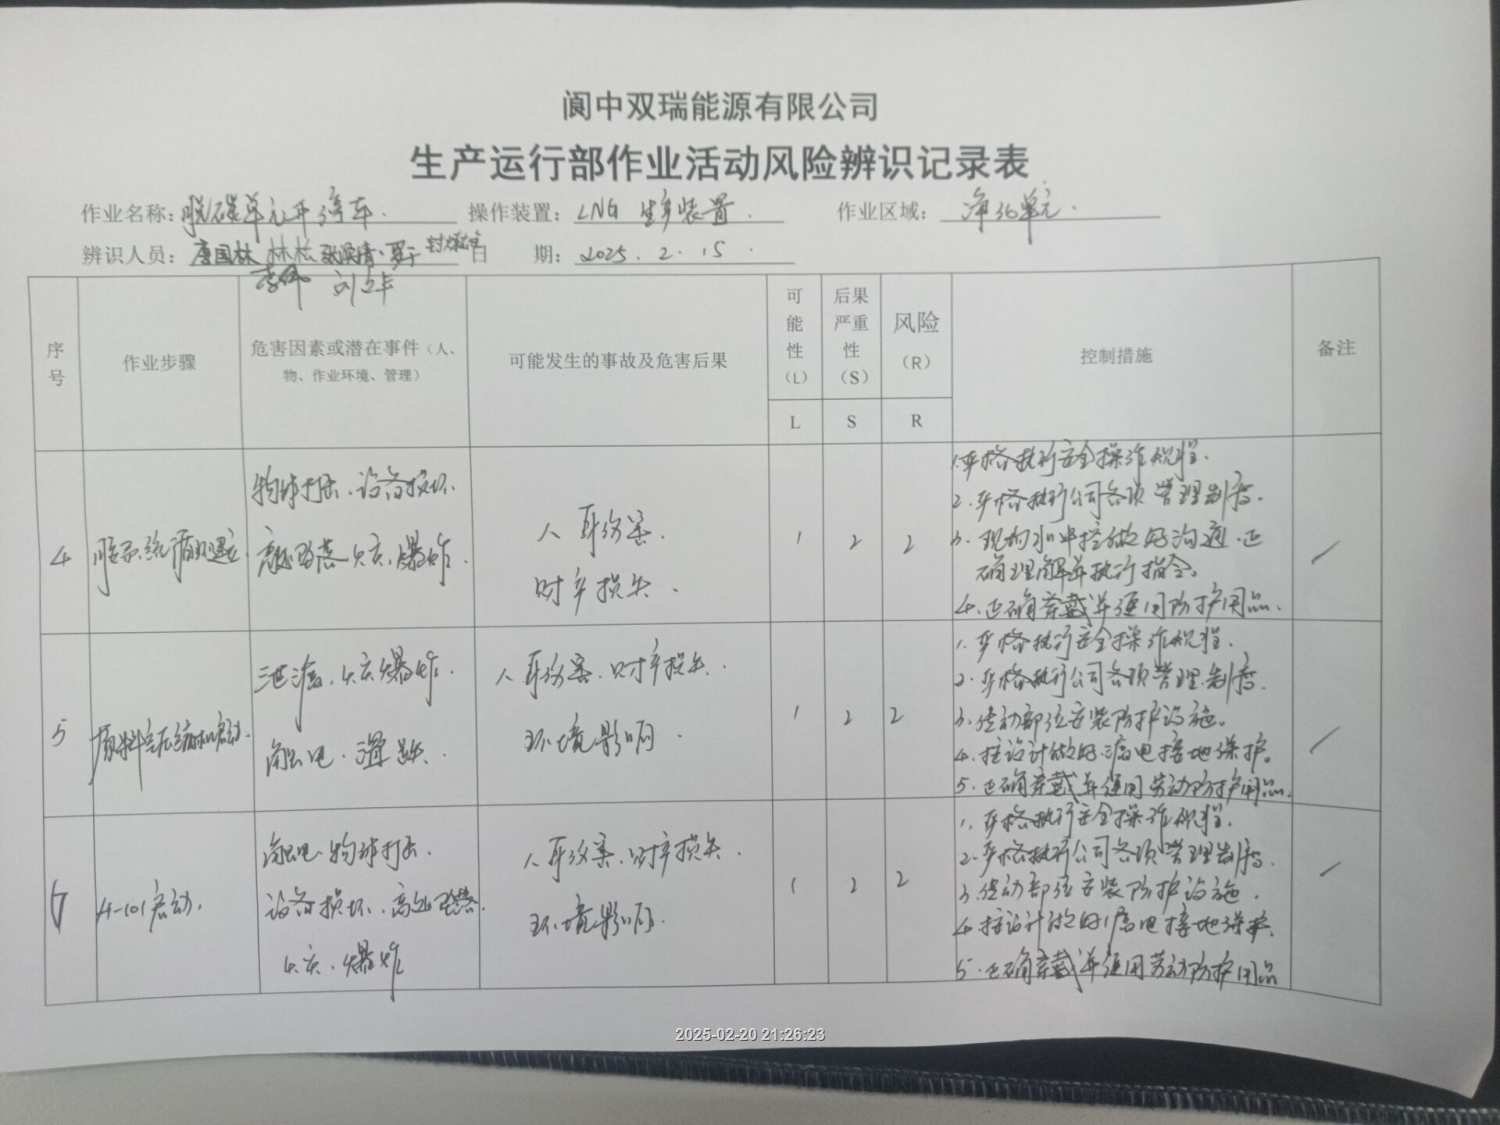 阆中双瑞能源有限公司
生产运行部作业活动风险辨识记录表
作业名称：脱碳单元开停车． 操作装置：LNG 生产装置． 作业区域：净化单元．
辨识人员：唐国林 林松 罗 日 期：2025．2．15
李 刘
序号 作业步骤 危害因素或潜在事件（人、物、作业环境、管理） 可能发生的事故及危害后果 可能性（L） 后果严重性（S） 风险（R） 控制措施 备注
L S R
4 系统循环建立 物体打击、设备损坏、
高处坠落、火灾、爆炸．
人身伤害．
财产损失．
1 2 2
1.严格执行安全操作规程．
2.严格执行公司各项管理制度．
3.现场和中控做好沟通、正
确理解并执行指令。
4.正确穿戴并使用防护用品．
5 原料气压缩机启动． 泄漏、火灾、爆炸．
触电、
人身伤害、财产损失．
环境影响．
1 2 2
1.严格执行安全操作规程．
2.严格执行公司各项管理制度．
3.传动部位安装防护设施。
4.按设计做好漏电接地保护。
5.正确穿戴并使用劳动防护用品．
6 H-101启动． 触电、物体打击．
设备损坏、高处坠落．
火灾、爆炸
人身伤害、财产损失．
环境影响．
1 2 2
1.严格执行安全操作规程．
2.严格执行公司各项管理制度．
3.传动部位安装防护设施．
4.按设计做好漏电接地保护．
5.正确穿戴并使用劳动防护用品
2025-02-20 21:26:23